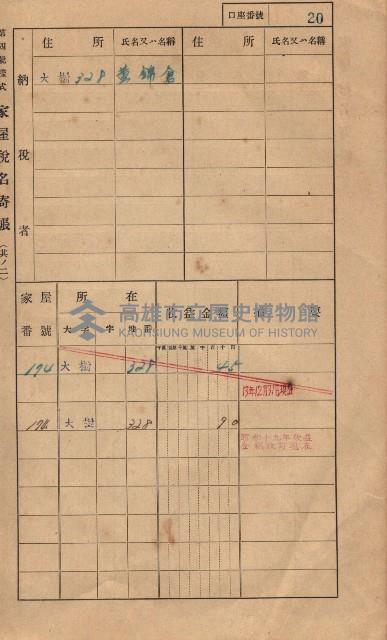 口座番號 20
第四號樣式 家屋稅名寄帳（其ノ二）
納稅者
住所 氏名又ハ名稱 住所 氏名又ハ名稱
大樹 329 黃錦倉
家屋番號 所在 賃金金額 摘要
大字 字 地番
高雄市立歷史博物館
KAOHSIUNG MUSEUM OF HISTORY
174 大樹 329 45
大樹 328 90